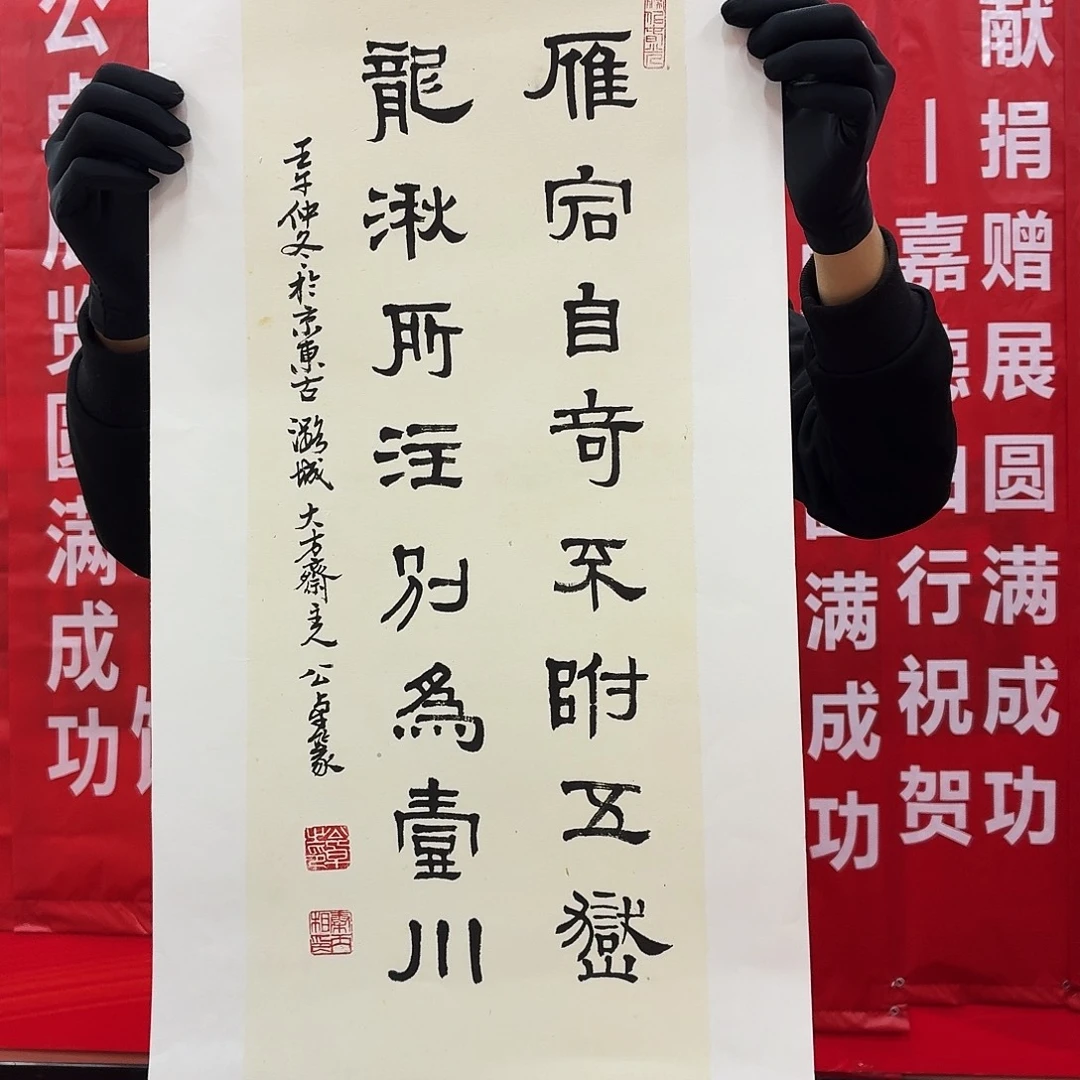 雁宕自奇不附五嶽
龍湫所注別為壹川
壬午仲冬於京東古潞城大方齋主人公卓
献捐赠展圆满成功
嘉德 行祝贺
满成功
公卓展览圆满成功